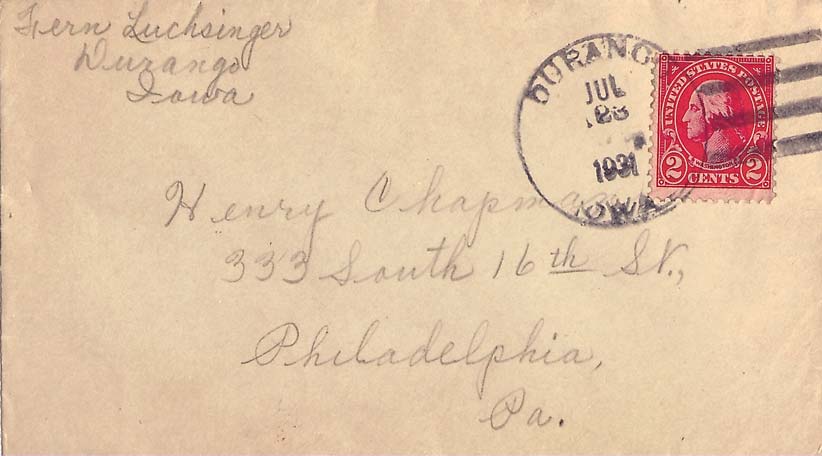 Fern Luchsinger
Durango
Iowa
DURANGO
JUL
28
1931
IOWA
UNITED STATES POSTAGE
WASHINGTON
2 CENTS 2
Henry Chapman
333 South 16th St.,
Philadelphia,
Pa.